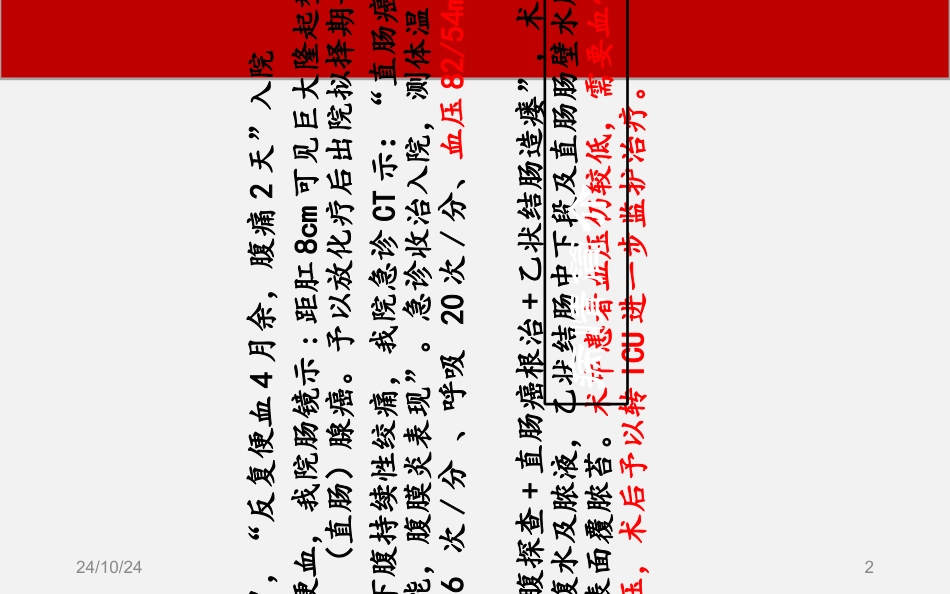 ，“反复便血4月余，腹痛2天”入院
便血，我院肠镜示：距肛8cm可见巨大隆起
（直肠）腺癌。予以放化疗后出院拟择期
下腹持续性绞痛，我院急诊CT示：“直肠癌
能，腹膜炎表现”。急诊收治入院，测体温
6次/分、呼吸20次/分、血压82/54m
腹探查+直肠癌根治+乙状结肠造瘘”，术
腹水及脓液，乙状结肠中下段及直肠肠壁水
表面覆脓苔。术中患者血压仍较低，需要血
压，术后予以转ICU进一步监护治疗。
24/10/24
2